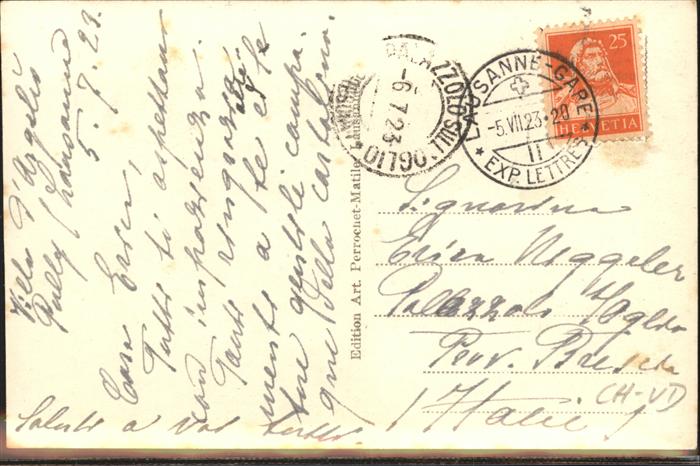 Villa d'Angelo
Pully Lausanne
5. 7. 23.
Cara Erica,
Tutti ti aspettano
con impazienza.
Tanti ringrazia
menti a te ed
alle
tue gentili compa
gne della
Saluti a voi tutti
Edition Art. Perrochet-Matile, Lausanne
PALAZZOLO SULL'OGLIO
-6.7.23
LAUSANNE-GARE
-5.VII.23-20
II
★ EXP. LETTRES ★
25
HELVETIA
Signorina
Erica Niggeler
Palazzolo s/Oglio
Prov. Brescia
Italie
(CH-VD)